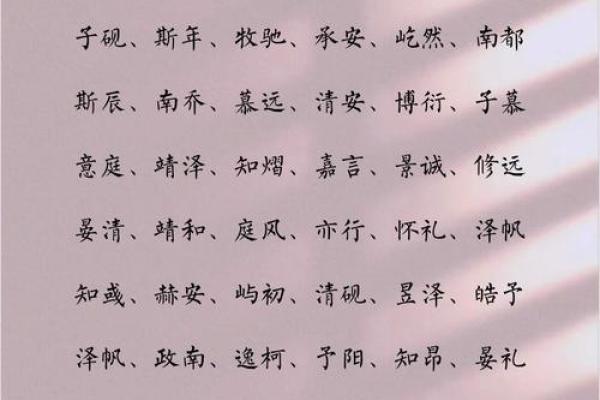 子砚、斯年、牧驰、承安、屹然、南都
斯辰、南乔、慕远、清安、博衍、子慕
意庭、靖泽、知熠、嘉言、景诚、修远
晏清、靖和、庭风、亦行、怀礼、泽帆
知彧、赫安、屿初、清砚、昱泽、皓予
泽帆、政南、逸柯、予阳、知昂、晏礼